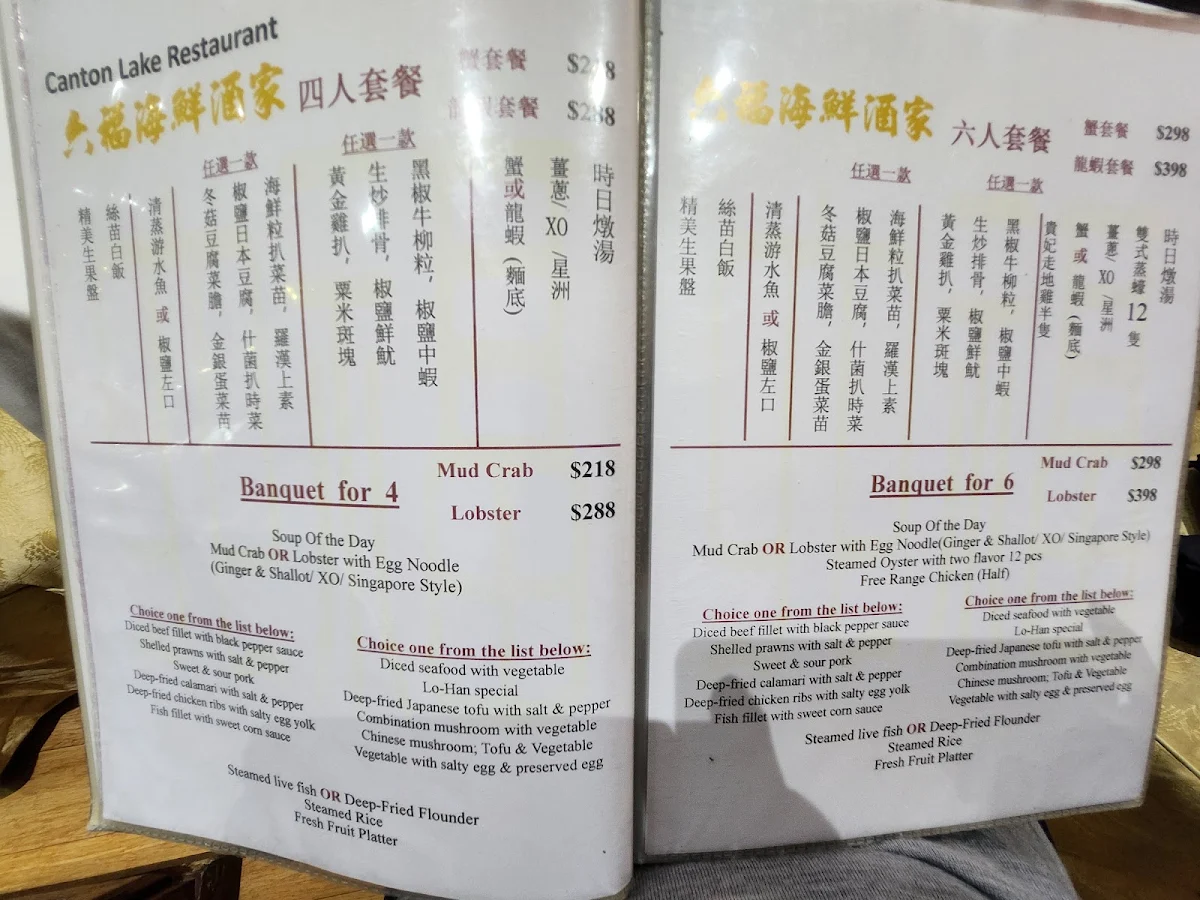 Canton Lake Restaurant
六福海鮮酒家 四人套餐
蟹套餐 $218
龍蝦套餐 $288
時日燉湯
薑蔥/ XO /星洲
蟹或龍蝦 (麵底)
任選一款
黑椒牛柳粒, 椒鹽中蝦
生炒排骨, 椒鹽鮮魷
黃金雞扒, 粟米斑塊
任選一款
海鮮粒扒菜苗, 羅漢上素
椒鹽日本豆腐, 什菌扒時菜
冬菇豆腐菜膽, 金銀蛋菜苗
清蒸游水魚 或 椒鹽左口
絲苗白飯
精美生果盤
Banquet for 4
Mud Crab $218
Lobster $288
Soup Of the Day
Mud Crab OR Lobster with Egg Noodle
(Ginger & Shallot/ XO/ Singapore Style)
Choice one from the list below:
Diced beef fillet with black pepper sauce
Shelled prawns with salt & pepper
Sweet & sour pork
Deep-fried calamari with salt & pepper
Deep-fried chicken ribs with salty egg yolk
Fish fillet with sweet corn sauce
Choice one from the list below:
Diced seafood with vegetable
Lo-Han special
Deep-fried Japanese tofu with salt & pepper
Combination mushroom with vegetable
Chinese mushroom; Tofu & Vegetable
Vegetable with salty egg & preserved egg
Steamed live fish OR Deep-Fried Flounder
Steamed Rice
Fresh Fruit Platter
六福海鮮酒家 六人套餐
蟹套餐 $298
龍蝦套餐 $398
時日燉湯
雙式蒸蠔 12 隻
薑蔥/ XO /星洲
蟹 或 龍蝦 (麵底)
貴妃走地雞半隻
任選一款
黑椒牛柳粒, 椒鹽中蝦
生炒排骨, 椒鹽鮮魷
黃金雞扒, 粟米斑塊
任選一款
海鮮粒扒菜苗, 羅漢上素
椒鹽日本豆腐, 什菌扒時菜
冬菇豆腐菜膽, 金銀蛋菜苗
清蒸游水魚 或 椒鹽左口
絲苗白飯
精美生果盤
Banquet for 6
Mud Crab $298
Lobster $398
Soup Of the Day
Mud Crab OR Lobster with Egg Noodle(Ginger & Shallot/ XO/ Singapore Style)
Steamed Oyster with two flavor 12 pcs
Free Range Chicken (Half)
Choice one from the list below:
Diced beef fillet with black pepper sauce
Shelled prawns with salt & pepper
Sweet & sour pork
Deep-fried calamari with salt & pepper
Deep-fried chicken ribs with salty egg yolk
Fish fillet with sweet corn sauce
Choice one from the list below:
Diced seafood with vegetable
Lo-Han special
Deep-fried Japanese tofu with salt & pepper
Combination mushroom with vegetable
Chinese mushroom; Tofu & Vegetable
Vegetable with salty egg & preserved egg
Steamed live fish OR Deep-Fried Flounder
Steamed Rice
Fresh Fruit Platter